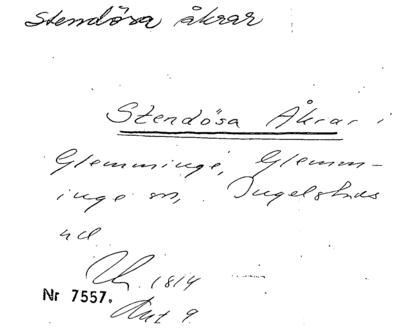 Stendösa åkrar
Stendösa Åkrar i
Glemminge, Glemm-
inge sn, Ingelstads
hd
1814
Nr 7557.
Akt 9